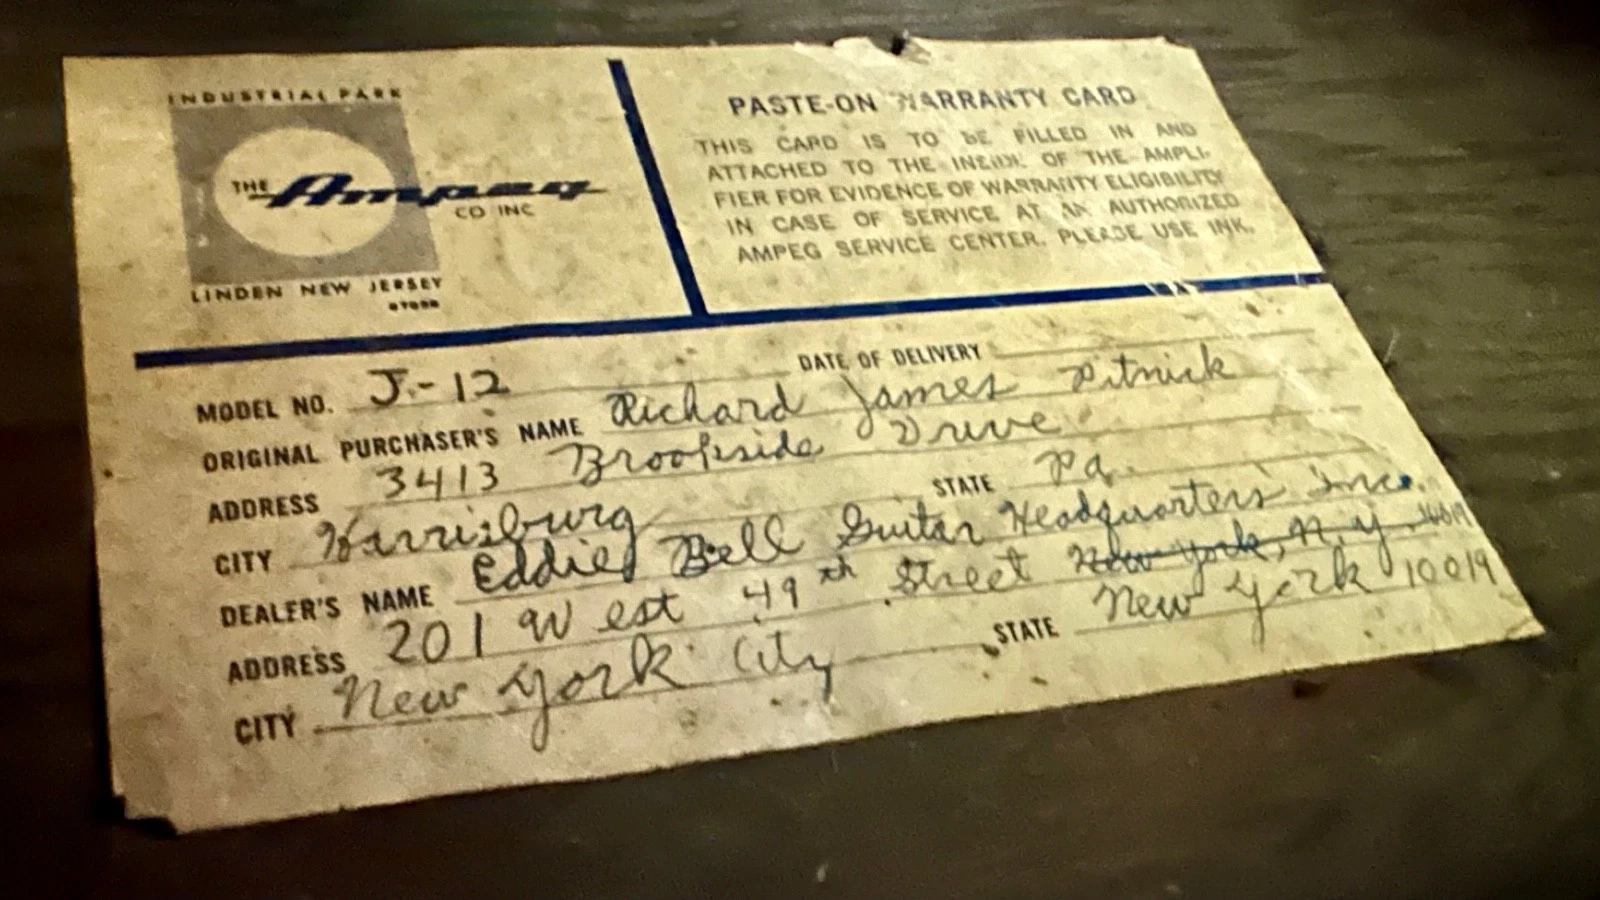 INDUSTRIAL PARK
THE Ampeg
CO INC
LINDEN NEW JERSEY
PASTE-ON WARRANTY CARD
THIS CARD IS TO BE FILLED IN AND
ATTACHED TO THE INSIDE OF THE AMPLI-
FIER FOR EVIDENCE OF WARRANTY ELIGIBILITY
IN CASE OF SERVICE AT AN AUTHORIZED
AMPEG SERVICE CENTER. PLEASE USE INK.
MODEL NO. J-12 DATE OF DELIVERY
ORIGINAL PURCHASER'S NAME Richard James Pitnick
ADDRESS 3413 Brookside Drive
CITY Harrisburg STATE Pa.
DEALER'S NAME Eddie Bell Guitar Headquarters Inc.
ADDRESS 201 West 49th Street New York, N.Y.
CITY New York City STATE New York 10019